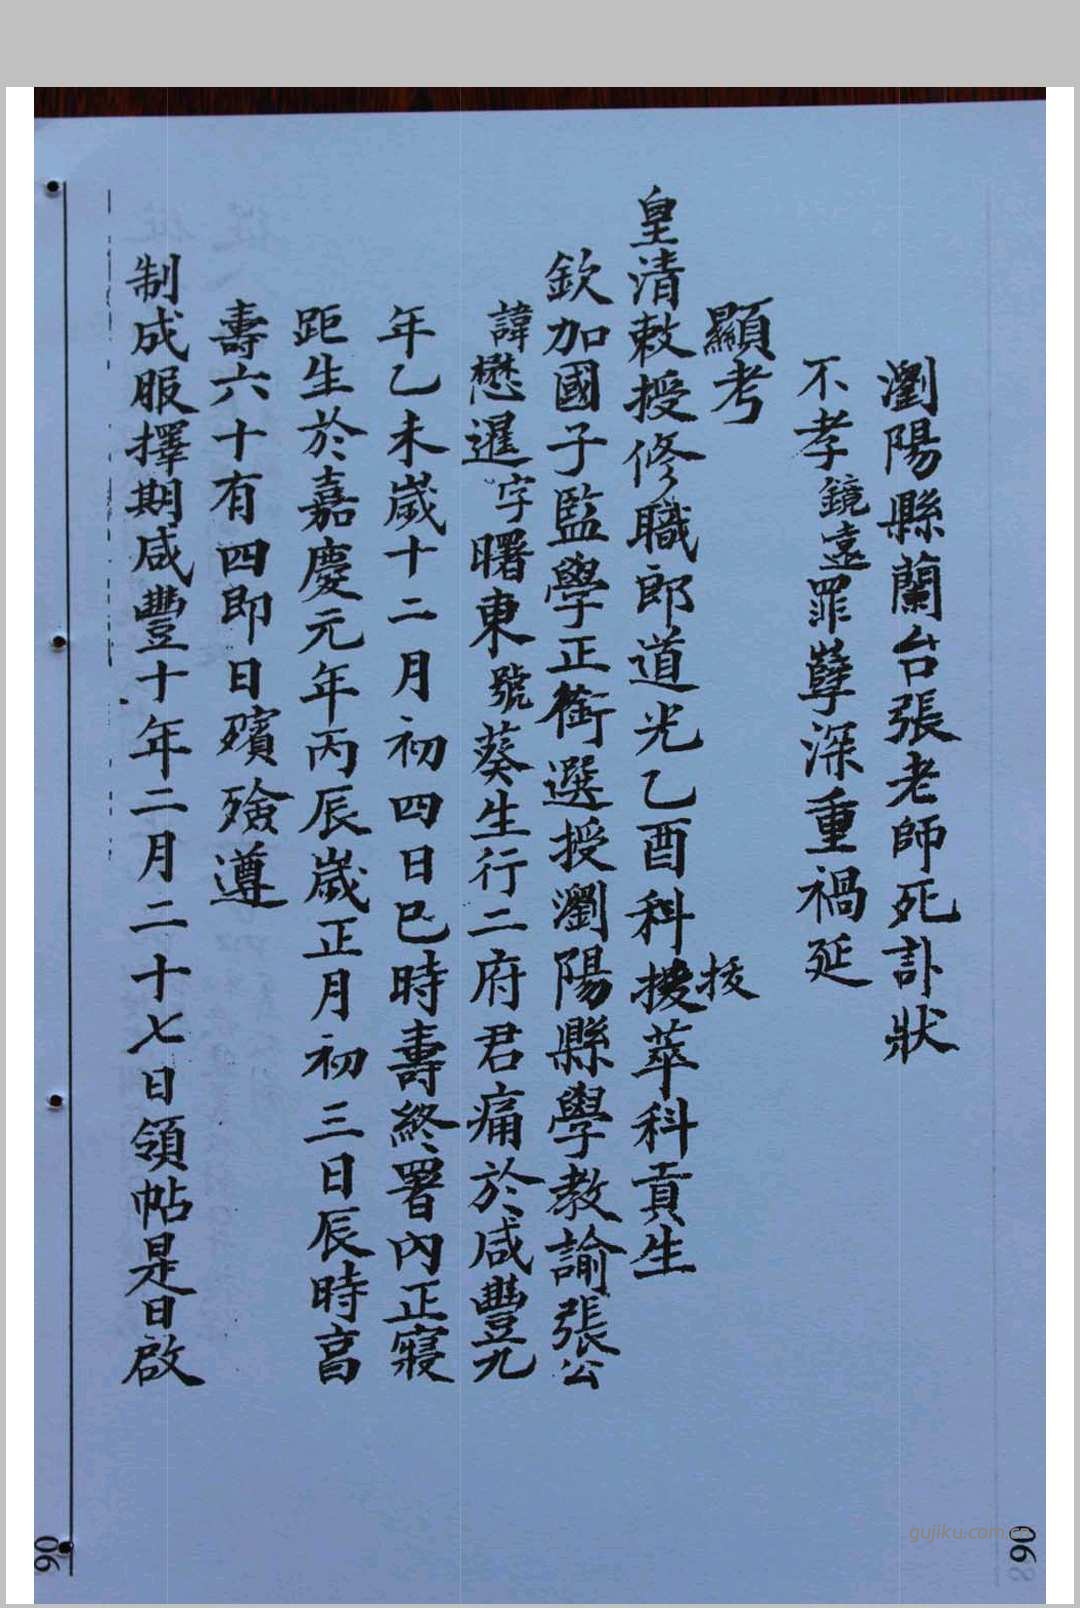 瀏陽縣蘭台張老師死訃狀
不孝鏡遠罪孽深重禍延
顯考
皇清敕授修職郎道光乙酉科拔萃科貢生
拔
欽加國子監學正銜選授瀏陽縣學教諭張公
諱懋暹字曙東號葵生行二府君痛於咸豐九
年乙未歲十二月初四日巳時壽終署內正寢
距生於嘉慶元年丙辰歲正月初三日辰時亯
壽六十有四即日殯殮遵
制成服擇期咸豐十年二月二十七日領帖是日啟
90
90
gujiku.com